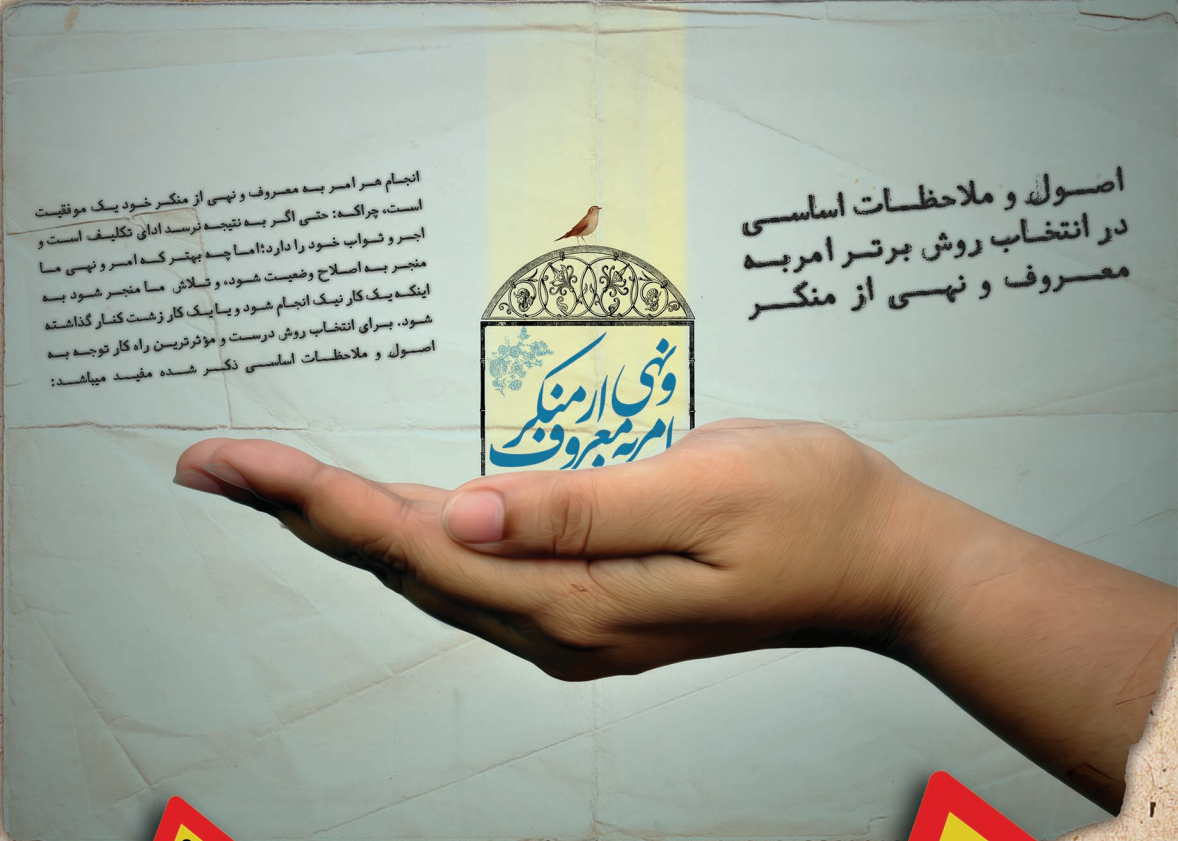 اصول و ملاحظات اساسی
در انتخاب روش برتر امربه
معروف و نهی از منکر
انجام هر امر به معروف و نهی از منکر خود یک موفقیت
است، چراکه: حتی اگر به نتیجه نرسد ادای تکلیف است و
اجر و ثواب خود را دارد؛اما چه بهتر که امر و نهی ما
منجر به اصلاح وضعیت شود، و تلاش ما منجر شود به
اینکه یک کار نیک انجام شود و یا یک کار زشت کنار گذاشته
شود. برای انتخاب روش درست و مؤثرترین راه کار توجه به
اصول و ملاحظات اساسی ذکر شده مفید میباشد:
امر به معروف
و نهی از منکر